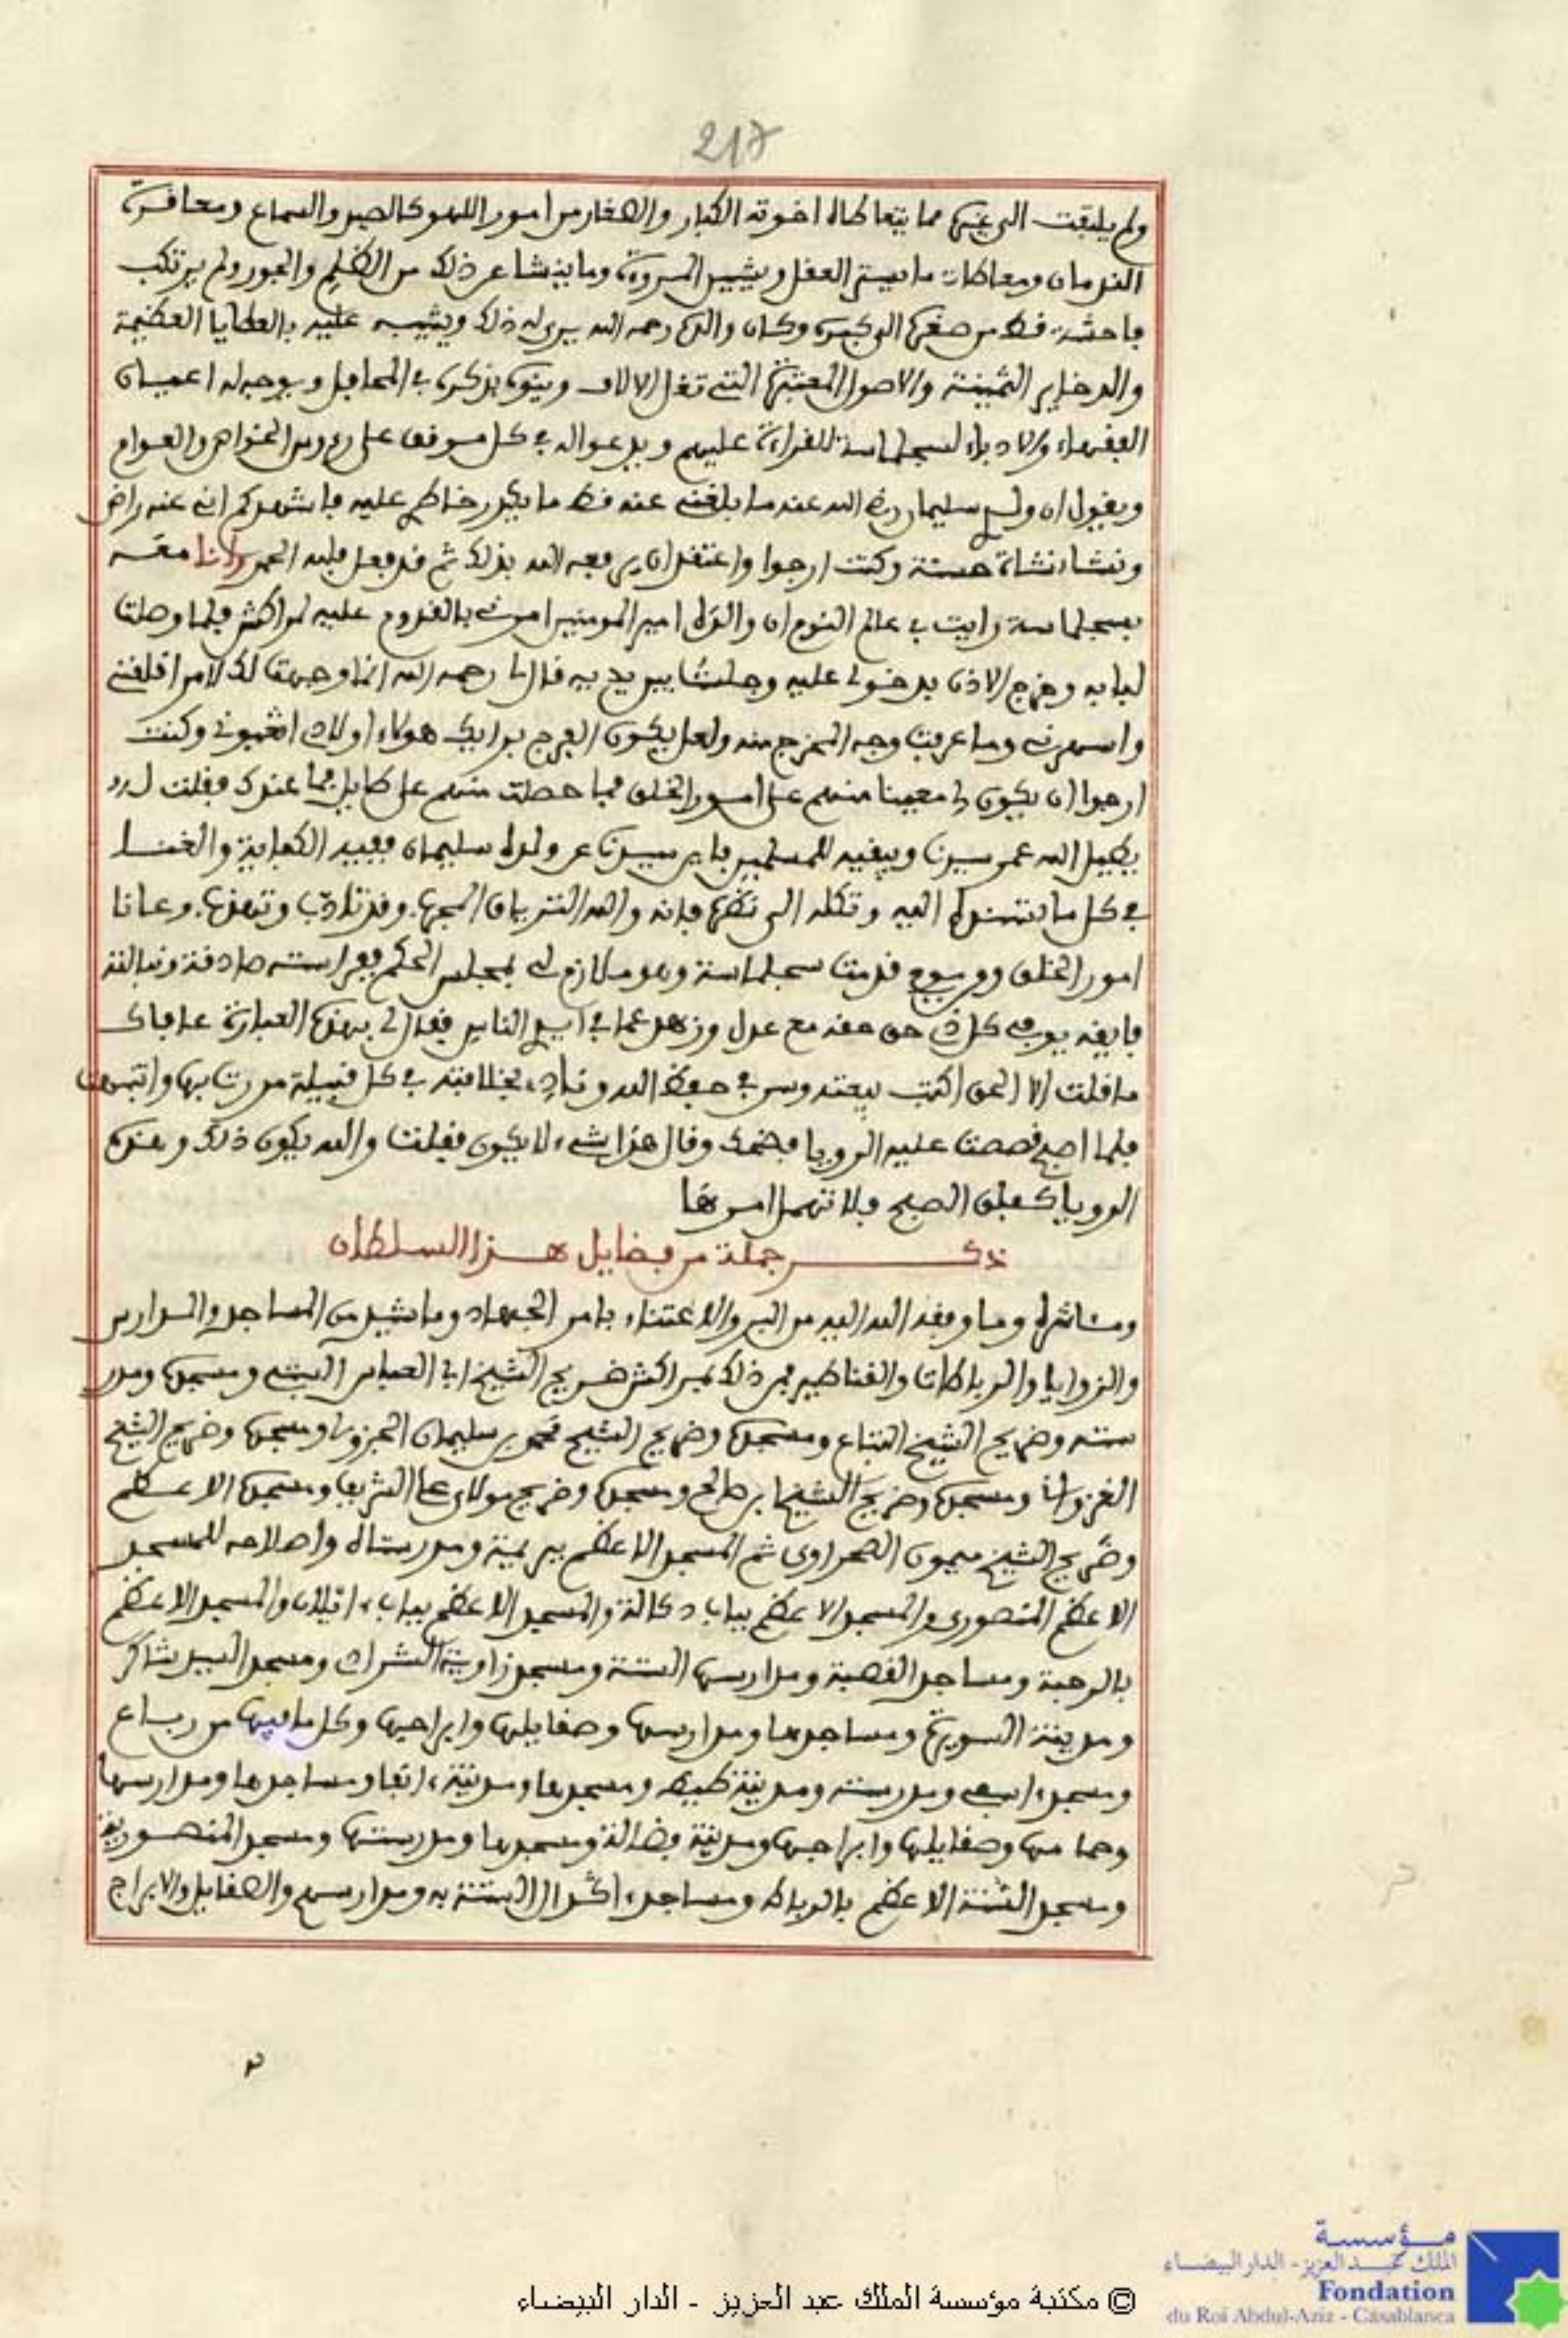 217
ولم يلتفت الى غيره مما يتعاطاه اخوته الكبار والصغار من امور اللهو كالصيد والسماع ومعاقرة
الندمان ومعاطات ما يستر العقل ويشين المروءة وما ينشا عن ذلك من الظلم والجور ولم يرتكب
فاحشة قط من صغره الى كبره وكان والده رحمه الله يرى له ذلك ويثيبه عليه بالعطايا العظيمة
والدخاير الثمينة والاصول المعتبرة التى تغل الالاف وينوه بذكره في المحافل ويوجه له اعيان
الفقهاء والادباء لسجلماسة للقراءة عليهم ويدعوا له في كل موقف على رءوس الخواص والعوام
ويقول ان ولدي سليمان رضي الله عنه ما بلغني عنه قط ما يكدر خاطري عليه فاشهدكم اني عنه راض
ونشا نشاة حسنة وكنت ارجوا واعتقد ان يرفعه الله بذلك ثم قد فعل فلله الحمد وانا معه
بسجلماسة رايت في عالم النوم ان والده امير المومنين امرني بالقدوم عليه لمراكش فلما وصلت
لبابه وخرج الاذن بدخولي عليه وجلست بين يديه قال لي رحمه الله انما وجهت لك لامر اقلقني
واسهرني وما عرفت وجه المخرج منه ولعل يكون الفرج برايك هولاء اولادي اتعبوني وكنت
ارجوا ان يكون لي معينا منهم على امور الخلق فما حصلت منهم على طايل فما عندك فقلت له
يطيل الله عمر سيدنا ويبقيه للمسلمين فاين سيدنا عن ولده سليمان ففيه الكفاية والغنا
في كل ما تسنده اليه وتكله الى نظره فانه والله الترياق المجرب وقد تادب وتهذب وعانا
امور الخلق وهو يوم قدمت سجلماسة وهو ملازم لي بمجلس الحكم وفراسته صادقة ونباهته
فايقة يوفي كل ذي حق حقه مع عدل وزهد عما في ايدي الناس فقال لي بهذه العبارة عافاك
ما قلت الا الحق اكتب بيعته وسر في حفظ الله وناد بخلافته في كل قبيلة مررت بها وانتبهت
فلما اصبح قصصت عليه الرويا فضحك وقال هذا شيء لا يكون فقلت والله يكون ذلك وهذه
الرويا كفلق الصبح فلا تهمل امرها
ذكر جملة من فضايل هذا السلطان
ومئاثره وما وفقه الله اليه من البر والاعتناء بامر الجهاد وما شيد من المساجد والمدارس
والزوايا والرباطات والقناطير فمن ذلك بمراكش ضريح الشيخ ابي العباس السبتي ومسجده ومدر
سته وضريح الشيخ التباع ومسجده وضريح الشيخ محمد بن سليمان الجزولي ومسجده وضريح الشيخ
الغزواني ومسجده وضريح الشيخ ابن صالح ومسجده وضريح مولاي علي الشريف ومسجده الاعظم
وضريح الشيخ ميمون الصحراوي ثم المسجد الاعظم ببريمة ومدرستاه واصلاحه للمسجد
الاعظم المنصوري والمسجد الاعظم بباب دكالة والمسجد الاعظم بباب ايلان والمسجد الاعظم
بالرحبة ومساجد القصبة ومدارسها الستة ومسجد زاوية الشرادي ومسجد السيد شاكر
ومدينة السويرة ومساجدها ومدارسها وصقايلها وابراجها وكل ما فيها من رباع
ومسجد اسفي ومدرسته ومدينة طيط ومسجدها ومدينة انفا ومساجدها ومدارسها
وحمامها وصقايلها وابراجها ومدينة فضالة ومسجدها ومدرستها ومسجد المنصورية
ومسجد السنة الاعظم بالرباط ومساجد اكدال الستة به ومدارسهم والصقايل والابراج
© مكتبة مؤسسة الملك عبد العزيز - الدار البيضاء
مؤسسة
الملك عبد العزيز - الدار البيضاء
Fondation
du Roi Abdul-Aziz - Casablanca